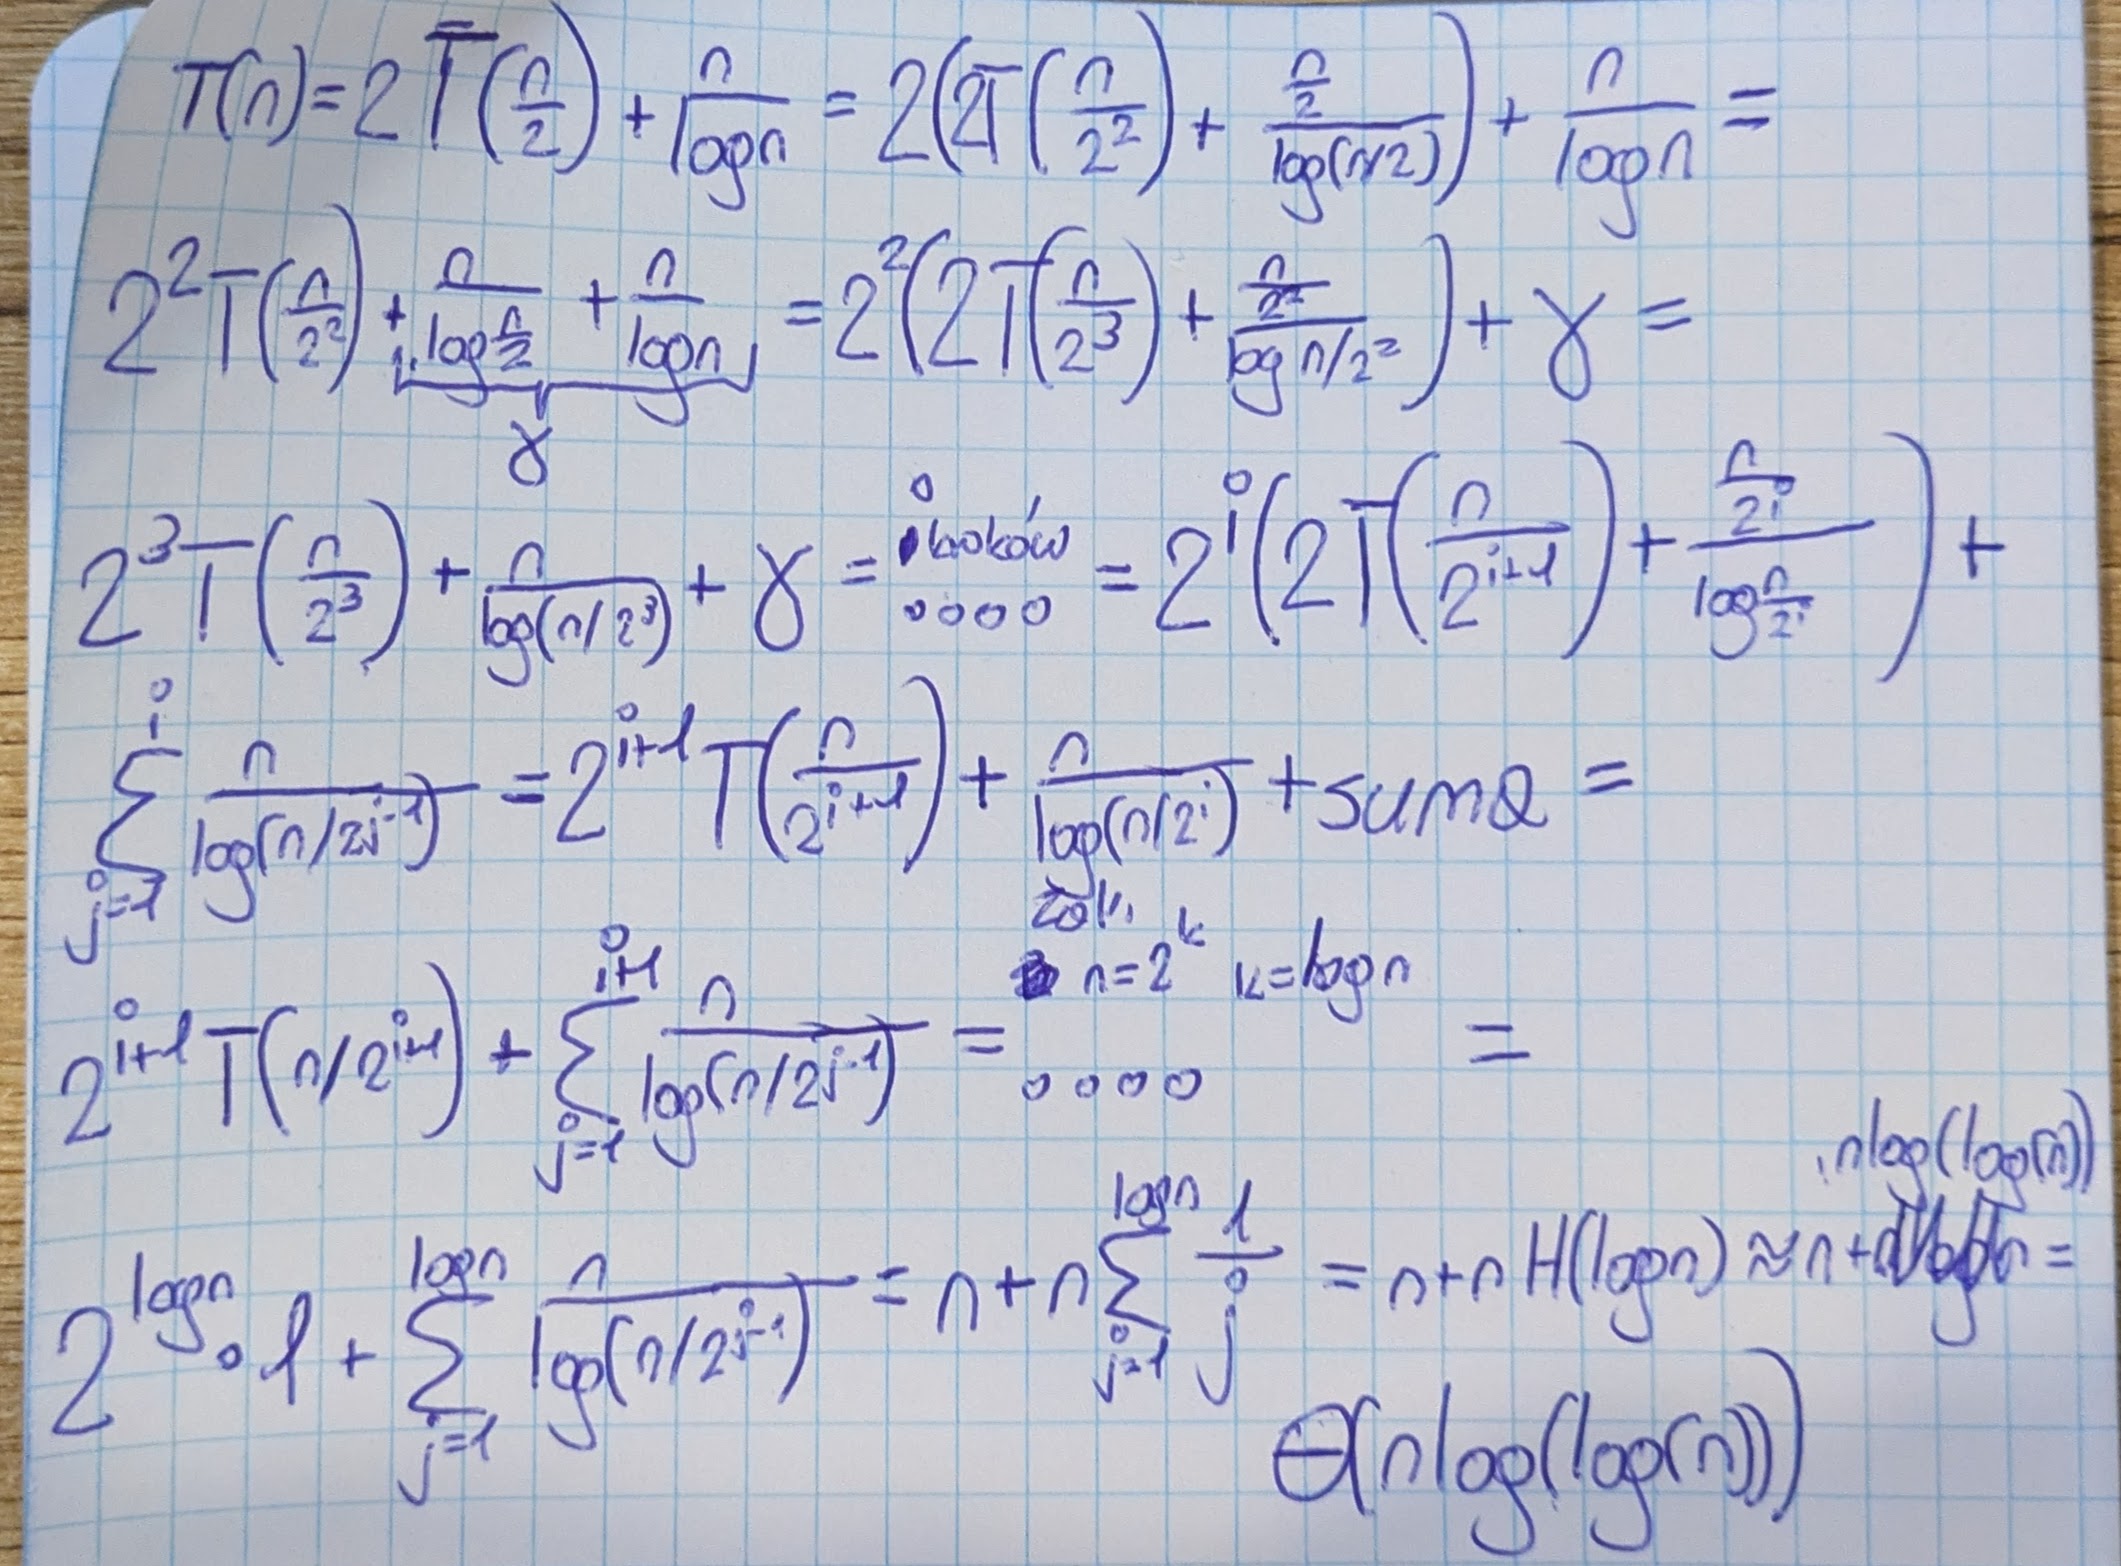 T(n)=2T(n/2)+n/logn=2(2T(n/2²)+(n/2)/log(n/2))+n/logn=
2²T(n/2²)+n/log(n/2)+n/logn=2²(2T(n/2³)+(n/2²)/logn/2²)+γ=
γ
2³T(n/2³)+n/log(n/2³)+γ= i kroków .... =2^i(2T(n/2^(i+1))+(n/2^i)/log(n/2^i))+
∑_{j=1}^{i} n/log(n/2^(j-1))=2^(i+1)T(n/2^(i+1))+n/log(n/2^i)+suma=
zał.
n=2^k k=logn
2^(i+1)T(n/2^(i+1))+∑_{j=1}^{i+1} n/log(n/2^(j-1))= .... =
nlog(log(n))
2^logn·1+∑_{j=1}^{logn} n/log(n/2^(j-1))=n+n∑_{j=1}^{logn} 1/j=n+nH(logn)≈n+ =
Θ(nlog(log(n)))